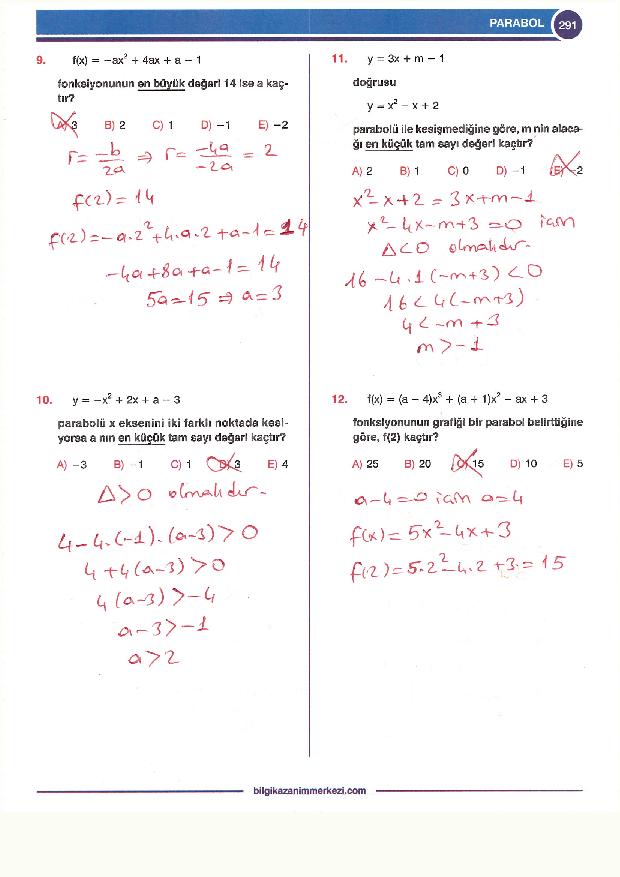 PARABOL 291
9. f(x) = −ax² + 4ax + a − 1
fonksiyonunun en büyük değeri 14 ise a kaç-
tır?
A) 3 B) 2 C) 1 D) −1 E) −2
r = −b/2a ⇒ r = −4a/−2a = 2
f(2) = 14
f(2) = −a.2² + 4.a.2 + a − 1 = 14
−4a + 8a + a − 1 = 14
5a = 15 ⇒ a = 3
10. y = −x² + 2x + a − 3
parabolü x eksenini iki farklı noktada kesi-
yorsa a nın en küçük tam sayı değeri kaçtır?
A) −3 B) −1 C) 1 D) 3 E) 4
Δ > 0 olmalıdır.
4 − 4.(−1).(a−3) > 0
4 + 4(a−3) > 0
4(a−3) > −4
a − 3 > −1
a > 2
11. y = 3x + m − 1
doğrusu
y = x² − x + 2
parabolü ile kesişmediğine göre, m nin alaca-
ğı en küçük tam sayı değeri kaçtır?
A) 2 B) 1 C) 0 D) −1 E) −2
x² − x + 2 = 3x + m − 1
x² − 4x − m + 3 = 0 için
Δ < 0 olmalıdır.
16 − 4.1(−m+3) < 0
16 < 4(−m+3)
4 < −m + 3
m > −1
12. f(x) = (a − 4)x³ + (a + 1)x² − ax + 3
fonksiyonunun grafiği bir parabol belirttiğine
göre, f(2) kaçtır?
A) 25 B) 20 C) 15 D) 10 E) 5
a − 4 = 0 için a = 4
f(x) = 5x² − 4x + 3
f(2) = 5.2² − 4.2 + 3 = 15
bilgikazanimmerkezi.com